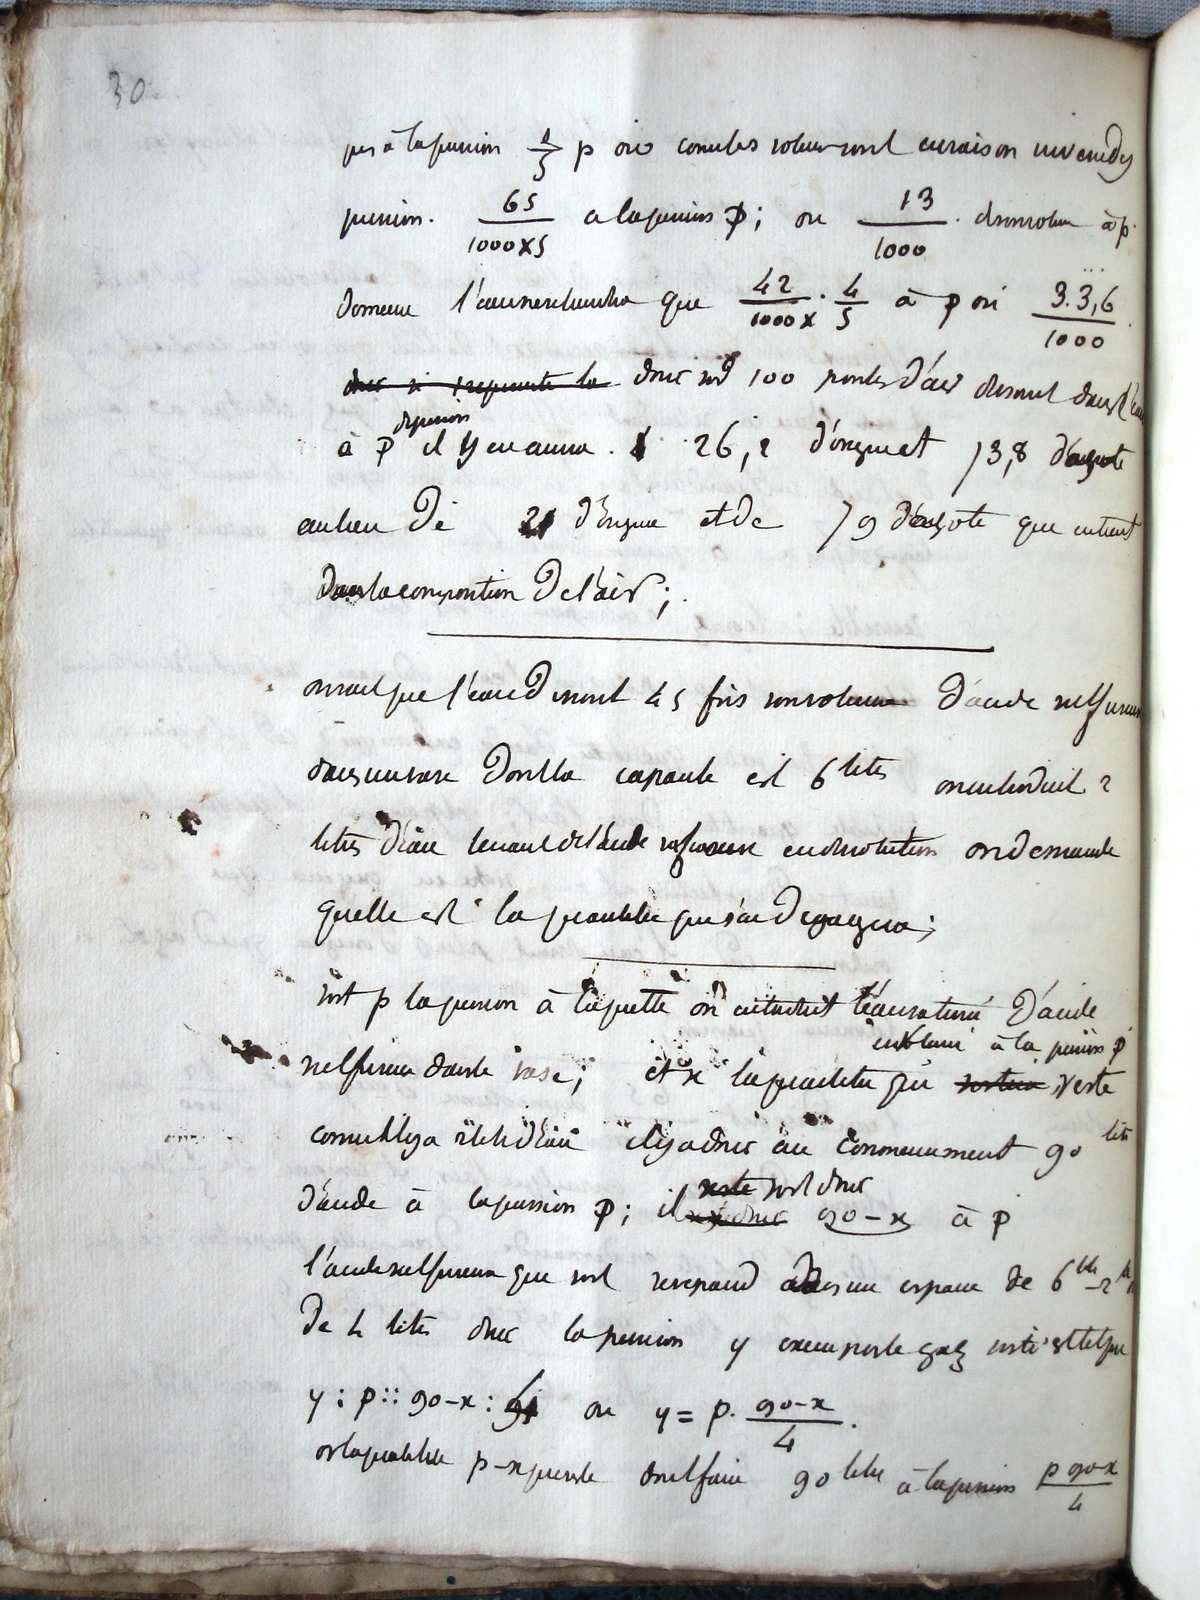 30
pas à la pression 1/5 p or comme les volumes sont en raison inverse des
pression. 65/1000x5 a la pression p; ou 13/1000. de son volume à p.
de meme l'eau ne prendra que 42/1000 x . 4/5 à p ou 3.3,6/1000
donc si represente la donc sur 100 parties d'air dissout dans l'eau
à p depression il y en aura . 26,2 d'oxigene et 73,8 d'azote
au lieu de 21 d'oxigene et de 79 d'azote que entrent
dans la composition de l'air;
on sait que l'eau dissout 45 fois son volume d'acide sulfureux
dans un vase dont la capacite est 6 lites on introduit 2
lites d'eau tenant de l'acide sulfureux en dissolution on demande
quelle est la quantite qui s'en degagera;
soit p la pression à laquelle on introduit l'eau saturé d'acide
sulfureux dans le vase; et x la quantite qui restera reste
en volume à la pression p
comme il y a 2 lit d'eau il y a donc au commencement 90 lit
d'acide à la pression p; il reste sort donc 90-x à p
l'acide sulfureux qui sort se repand dans un espace de 6 lit -2 lit
de 4 lites donc la pression y exercee par le gaz sorti est telle que
y : p :: 90-x : 4 ou y = p. 90-x/4.
or la quantite p-x doit faire 90 lites à la pression p 90-x/4